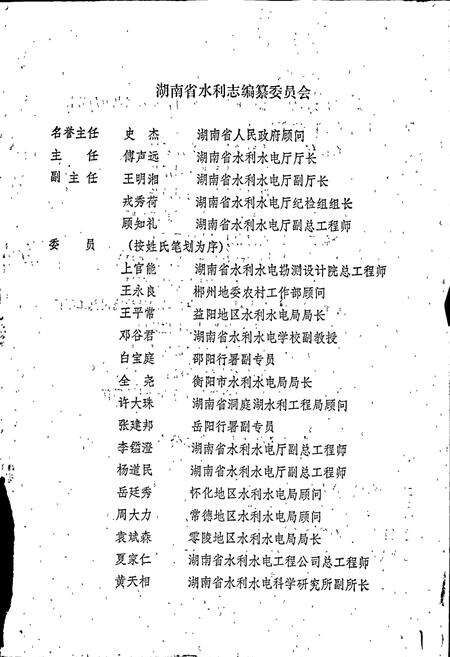 湖南省水利志编纂委员会
名誉主任 史杰 湖南省人民政府顾问
主任 傅声远 湖南省水利水电厅厅长
副主任 王明湘 湖南省水利水电厅副厅长
戎秀荷 湖南省水利水电厅纪检组组长
顾知礼 湖南省水利水电厅副总工程师
委员 (按姓氏笔划为序)
上官能 湖南省水利水电勘测设计院总工程师
王永良 郴州地委农村工作部顾问
王平常 益阳地区水利水电局局长
邓谷君 湖南省水利水电学校副教授
白宝庭 邵阳行署副专员
全尧 衡阳市水利水电局局长
许大珠 湖南省洞庭湖水利工程局顾问
张建邦 岳阳行署副专员
李镒澄 湖南省水利水电厅副总工程师
杨道民 湖南省水利水电厅副总工程师
岳廷秀 怀化地区水利水电局顾问
周大力 常德地区水利水电局顾问
袁斌森 零陵地区水利水电局局长
夏家仁 湖南省水利水电工程公司总工程师
黄天相 湖南省水利水电科学研究所副所长